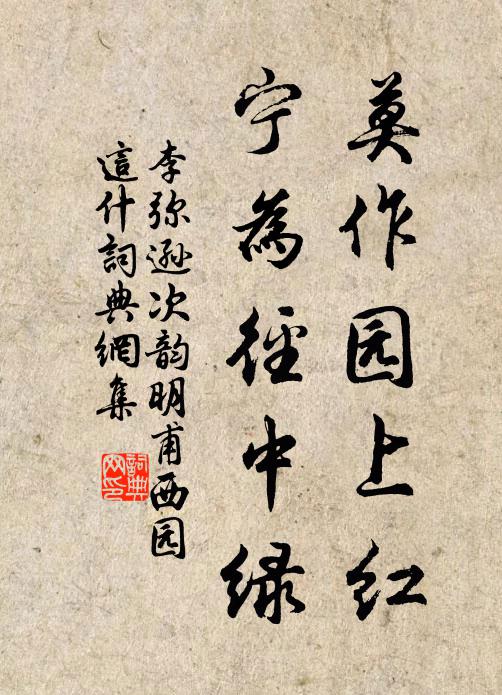 莫作园上红
宁為徑中绿
李弥遜次韵明甫西园
這什詞典網集
詞典網印